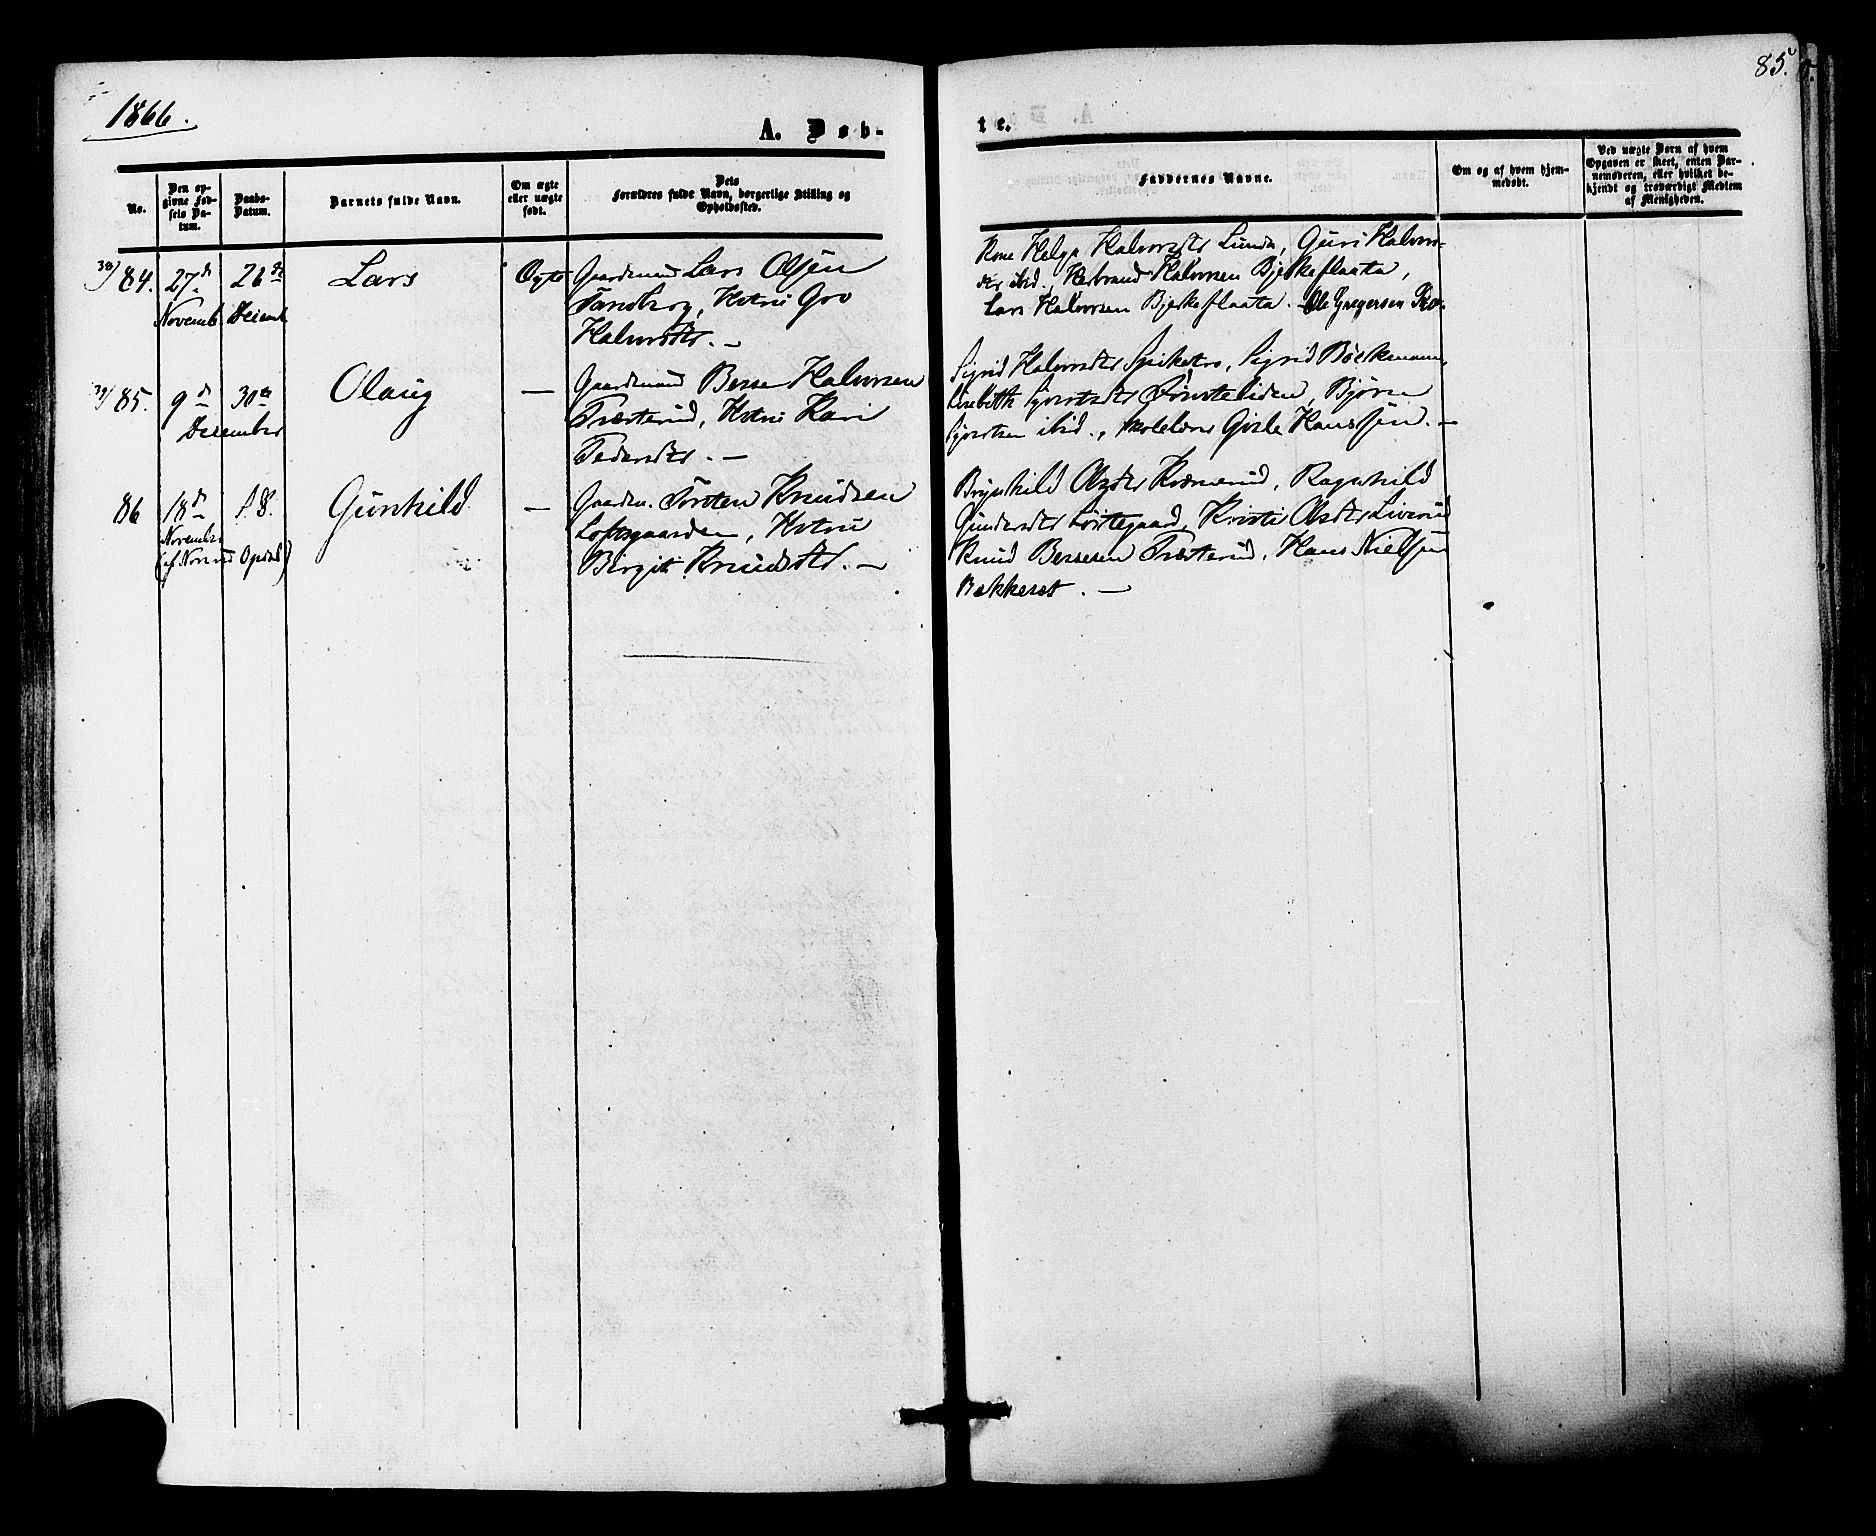 1866.
85.
A. Døb-
te.
No.
Den op-
givne Fød-
sels Da-
tum.
Daabs-
Datum.
Barnets fulde Navn.
Om ægte
eller uægte
født.
Dets
Forældres fulde Navn, borgerlige Stilling og
Opholdssted.
Faddernes Navne.
Om og af hvem hjem-
medøbt.
Ved uægte Børn af hvem
Opgaven er skeet, enten Bar-
nemoderen, eller hvilket be-
kjendt og troværdigt Medlem
af Menigheden.
38/84. 27de Novemb. 26de Decemb. Lars Ægte
Gaardmand Lars Olsen
Sandberg, Hstru Gro
Halvorsdtr. —
Kone Helga Halvorsdtr Lunde, Guri Halvors-
dtr ibid., Herbrand Halvorsen Bjerkeflaata,
Lars Halvorsen Bjerkeflaata. Ole Gregersen
39/85. 9de 30te December Olaug —
Gaardmand Besse Halvorsen
Træsterud, Hstru Kari
Pedersdtr. —
Sigrid Halvorsdtr, Sigrid Bøckmann,
Lisbeth Sjovatsdtr Førsteliden, Bjørn
Sjovatsen ibid., Skolelærer Gisle Hanssen. —
86 18de November S. D. Gunhild —
(af Nore und Opdal)
Gaardm. Torsten Knudsen
Loftsgaarden, Hstru
Birgit Knudsdtr. —
Brynhild Olsdtr, Ragnhild
Gundersdtr, Kristi Olsdtr Liverud
Knud Bessesen Træsterud, Hans Nielsen
Bekkeset. —